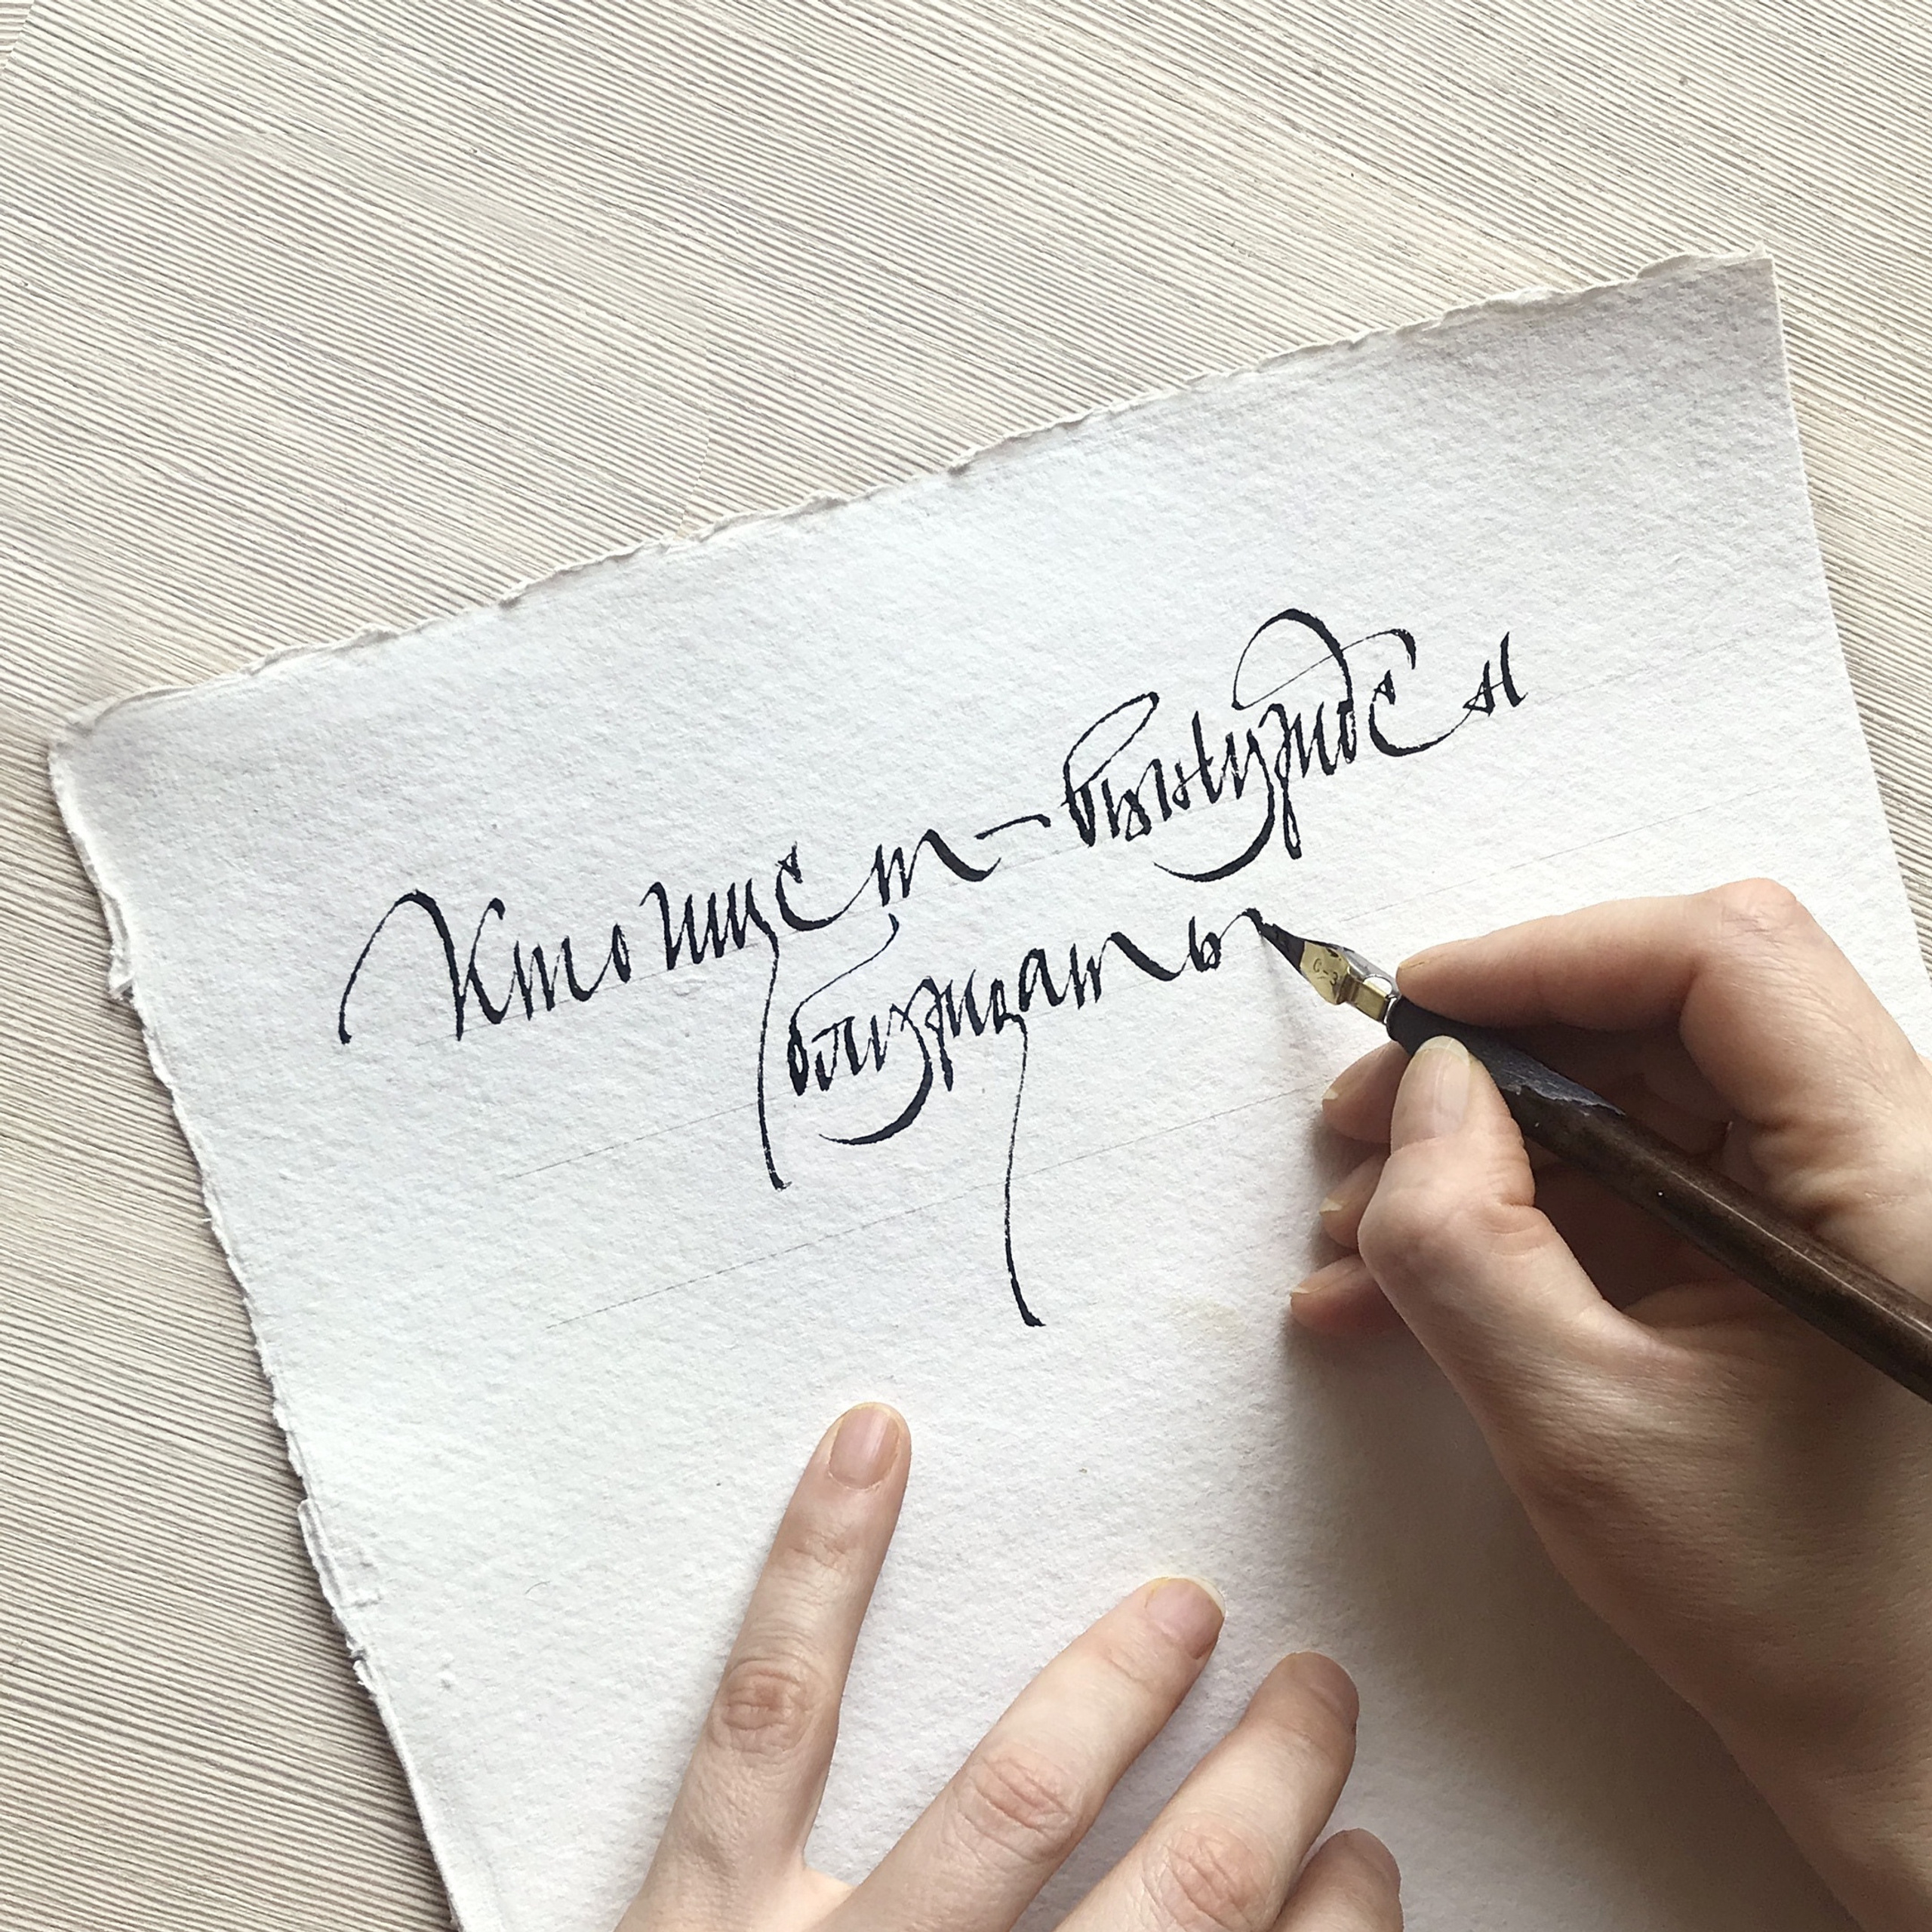 Кто ищет – вынужден
блуждать